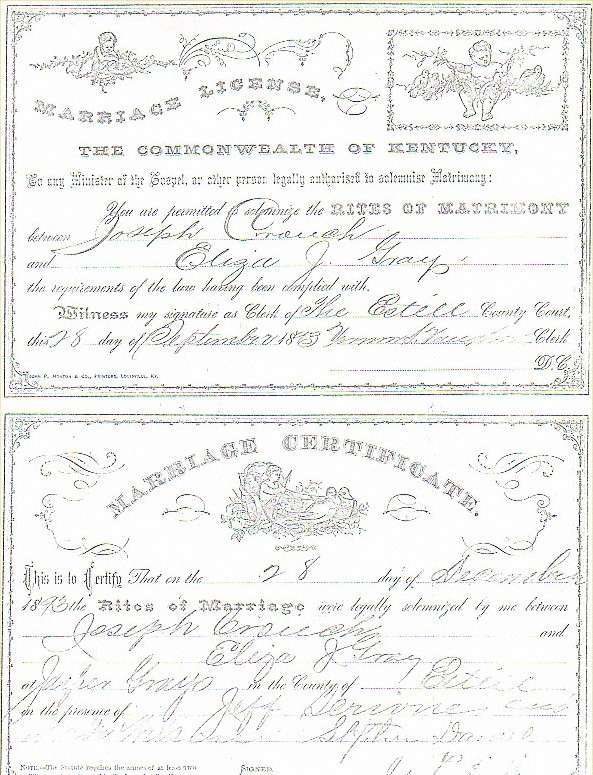 MARRIAGE LICENSE,
THE COMMONWEALTH OF KENTUCKY,
To any Minister of the Gospel, or other person legally authorised to solemnise Matrimony:
You are permitted to solemnize the RITES OF MATRIMONY
between Joseph Crouch
and Eliza J. Gray
the requirements of the law having been complied with.
Witness my signature as Clerk of The Estill County Court,
this 28 day of September 1893 Clerk
D.C.
JOHN P. MORTON & CO., PRINTERS, LOUISVILLE, KY.
MARRIAGE CERTIFICATE.
This is to Certify That on the 28 day of December
1893 the Rites of Marriage were legally solemnized by me between
Joseph Crouch and
Eliza J Gray
at Grays in the County of Estill
in the presence of Jeff and
Stephen
NOTE.—The Statute requires the names of at least two SIGNED